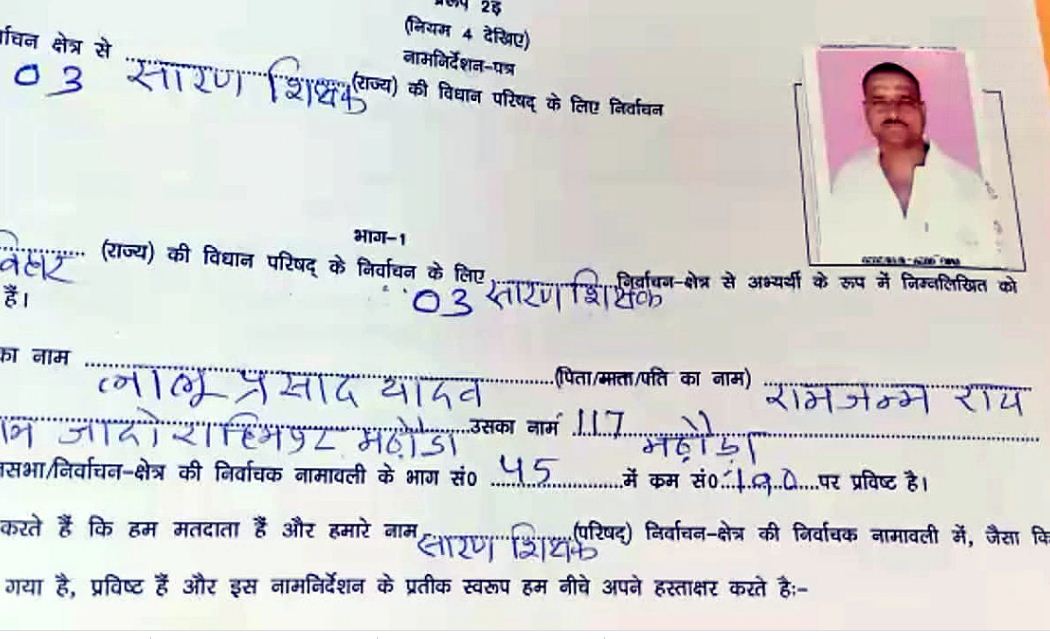 प्ररूप 2ड़
(नियम 4 देखिए)
नामनिर्देशन-पत्र
र्वाचन क्षेत्र से 03 सारण शिक्षक (राज्य) की विधान परिषद् के लिए निर्वाचन
भाग-1
बिहार (राज्य) की विधान परिषद् के निर्वाचन के लिए 03 सारण शिक्षक निर्वाचन-क्षेत्र से अभ्यर्थी के रूप में निम्नलिखित को
हैं।
का नाम लालू प्रसाद यादव (पिता/माता/पति का नाम) रामजन्म राय
जादो रहिमपुर मढ़ौड़ा उसका नाम 117 मढ़ौड़ा
सभा/निर्वाचन-क्षेत्र की निर्वाचक नामावली के भाग सं० 45 में कम सं० 190 पर प्रविष्ट है।
करते हैं कि हम मतदाता हैं और हमारे नाम सारण शिक्षक (परिषद्) निर्वाचन-क्षेत्र की निर्वाचक नामावली में, जैसा कि
गया है, प्रविष्ट हैं और इस नामनिर्देशन के प्रतीक स्वरूप हम नीचे अपने हस्ताक्षर करते है:-